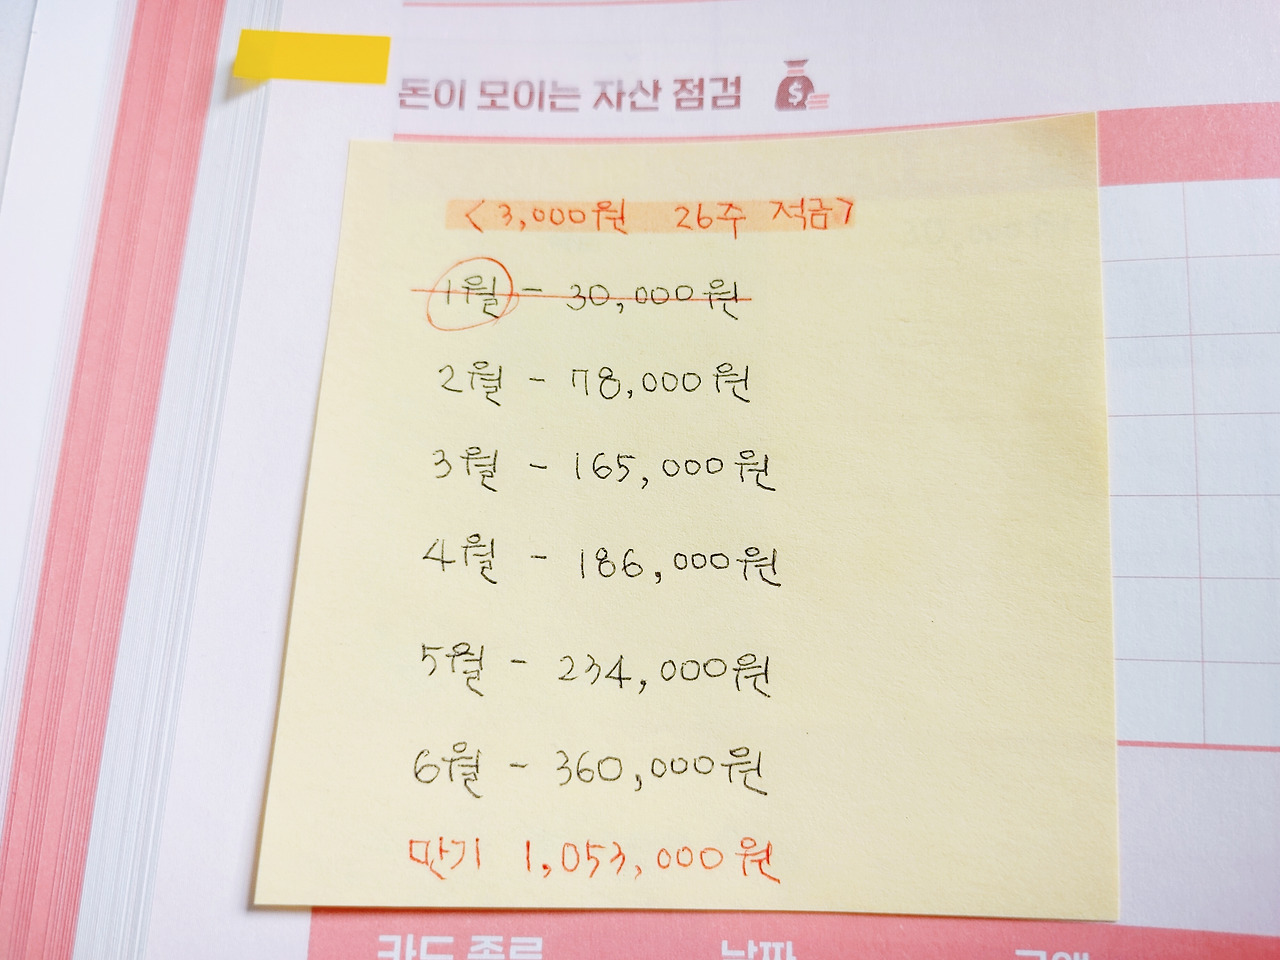 돈이 모이는 자산 점검
<3,000원 26주 적금>
1월 - 30,000원
2월 - 78,000원
3월 - 165,000원
4월 - 186,000원
5월 - 234,000원
6월 - 360,000원
만기 1,053,000원
카드 종류 날짜 금액